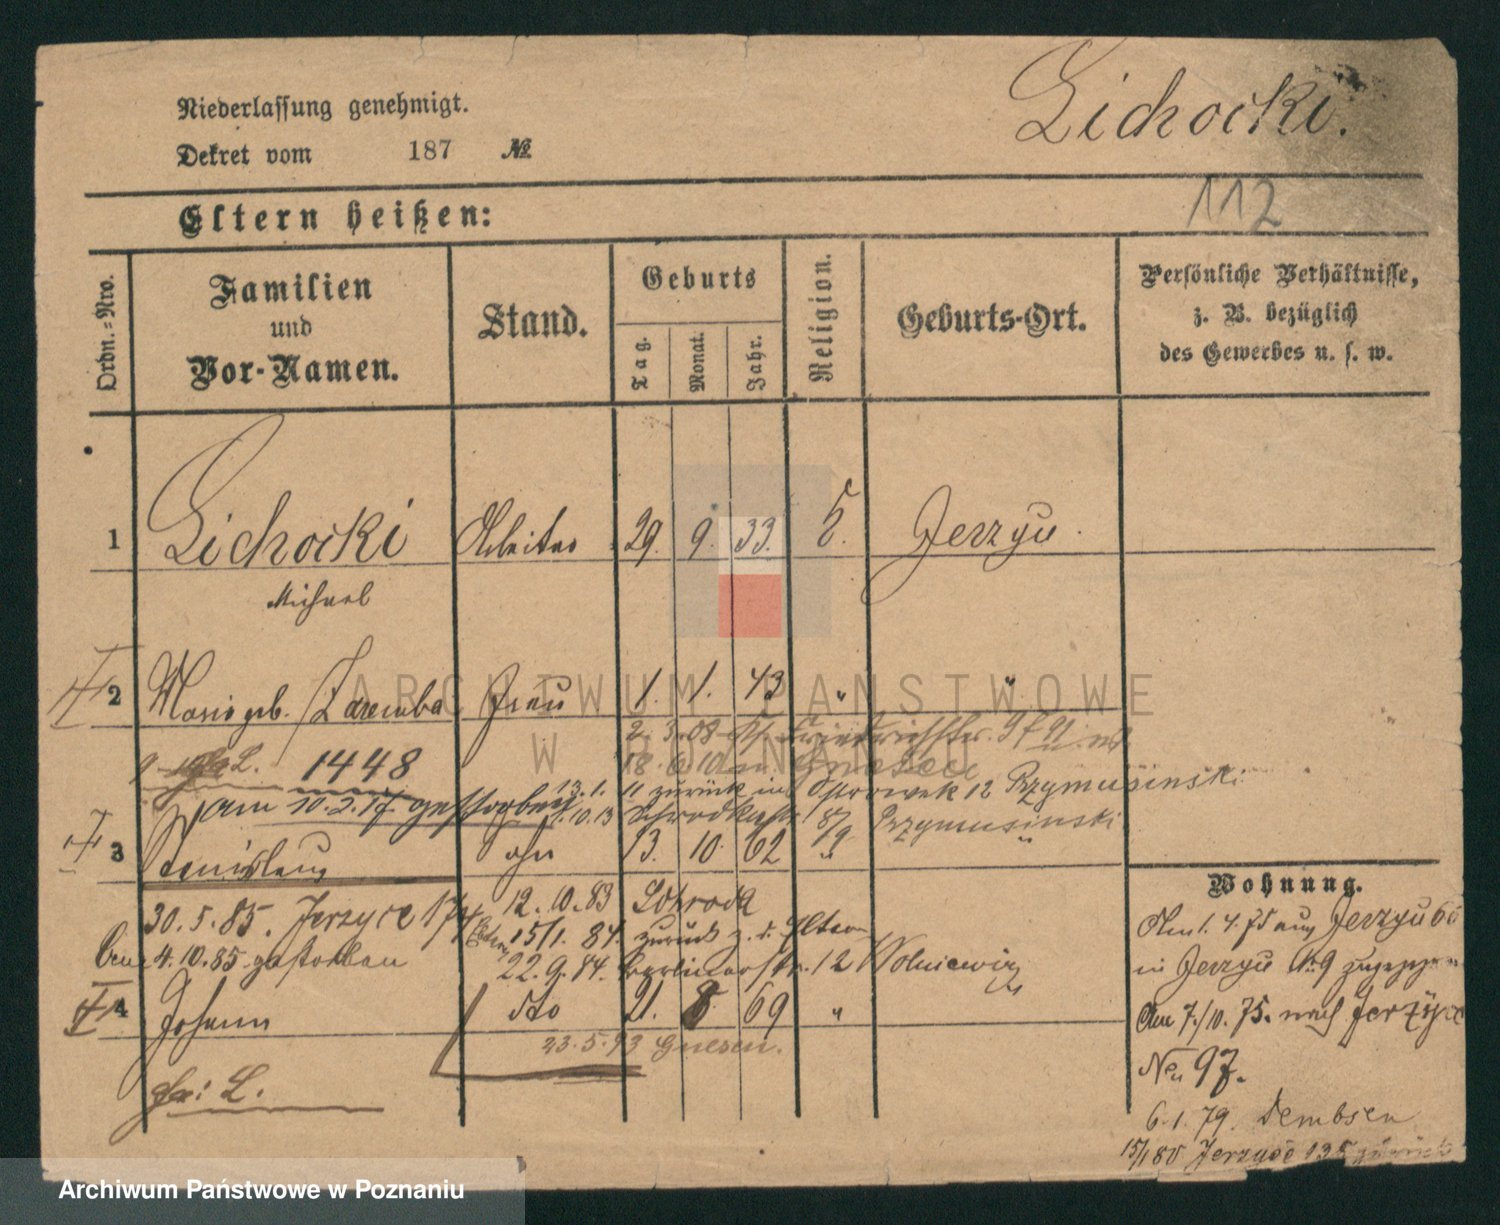 Lichocki.
Niederlassung genehmigt.
Dekret vom 187 №
112
Eltern heißen:
Ordn.-Nro.
Familien
und
Vor-Namen.
Stand.
Geburts
Tag.
Monat.
Jahr.
Religion.
Geburts-Ort.
Persönliche Verhältnisse,
z. B. bezüglich
des Gewerbes u. s. w.
1 Lichocki Arbeiter 29. 9. 33. Jerzyce.
Michael
2 Maria geb. Zaremba Frau 1. 1. 43 " "
ARCHIWUM PAŃSTWOWE
W POZNANIU
2. 3. 08
L. 1448
18. 6. 10 Gnesen
13. 1. 11 zurück Ostrowek 12 Przymusinski
am 10. 2. 17 gestorben
10. 13 87/9 Przymusinski
3 Stanislaus Sohn 13. 10. 62 " "
30. 5. 85. Jerzyce 174
12. 10. 83 Schroda
15/1. 84. zurück z. d. Eltern
4. 10. 85 gestorben
22. 9. 84. Berlinerstr. 12 Wolniewicz
4 Johann dto 21. 8. 69 "
23. 5. 93 Gnesen.
L.
Wohnung.
Am 1. 4. 75 aus Jerzyce
in Jerzyce № 9 zugezogen
Am 7./10. 75. nach Jerzyce
No 97.
6. 1. 79. Dembsen
15/1 80 Jerzyce 135 zurück
Archiwum Państwowe w Poznaniu